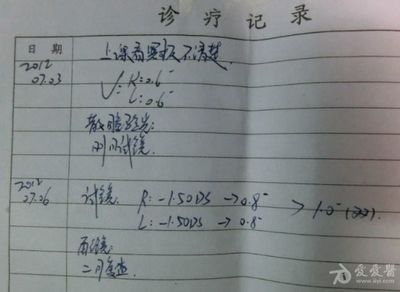 诊疗记录
日期
上课看黑板不清楚.
2012
07.03
V
R: 0.6⁻
L: 0.6⁻
散瞳验光:
试镜.
2012
07.06
试镜: R: -1.50DS → 0.8⁻
L: -1.50DS → 0.8⁻
> 1.0⁻
配镜:
二月复查.
爱爱医
www.iiyi.com